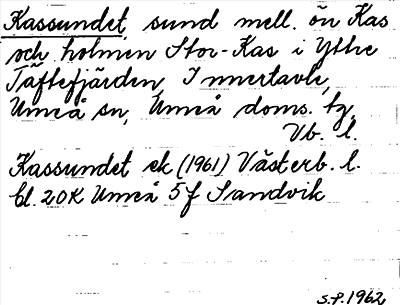 Kassundet, sund mell. ön Kas
och holmen Stor-Kas i Yttre
Täftefjärden, Innertavle,
Umeå sn, Umeå doms. tg.
Vb. l.
Kassundet ek (1961) Västerb. l.
bl. 20K Umeå 5f Sandvik
S.P. 1962